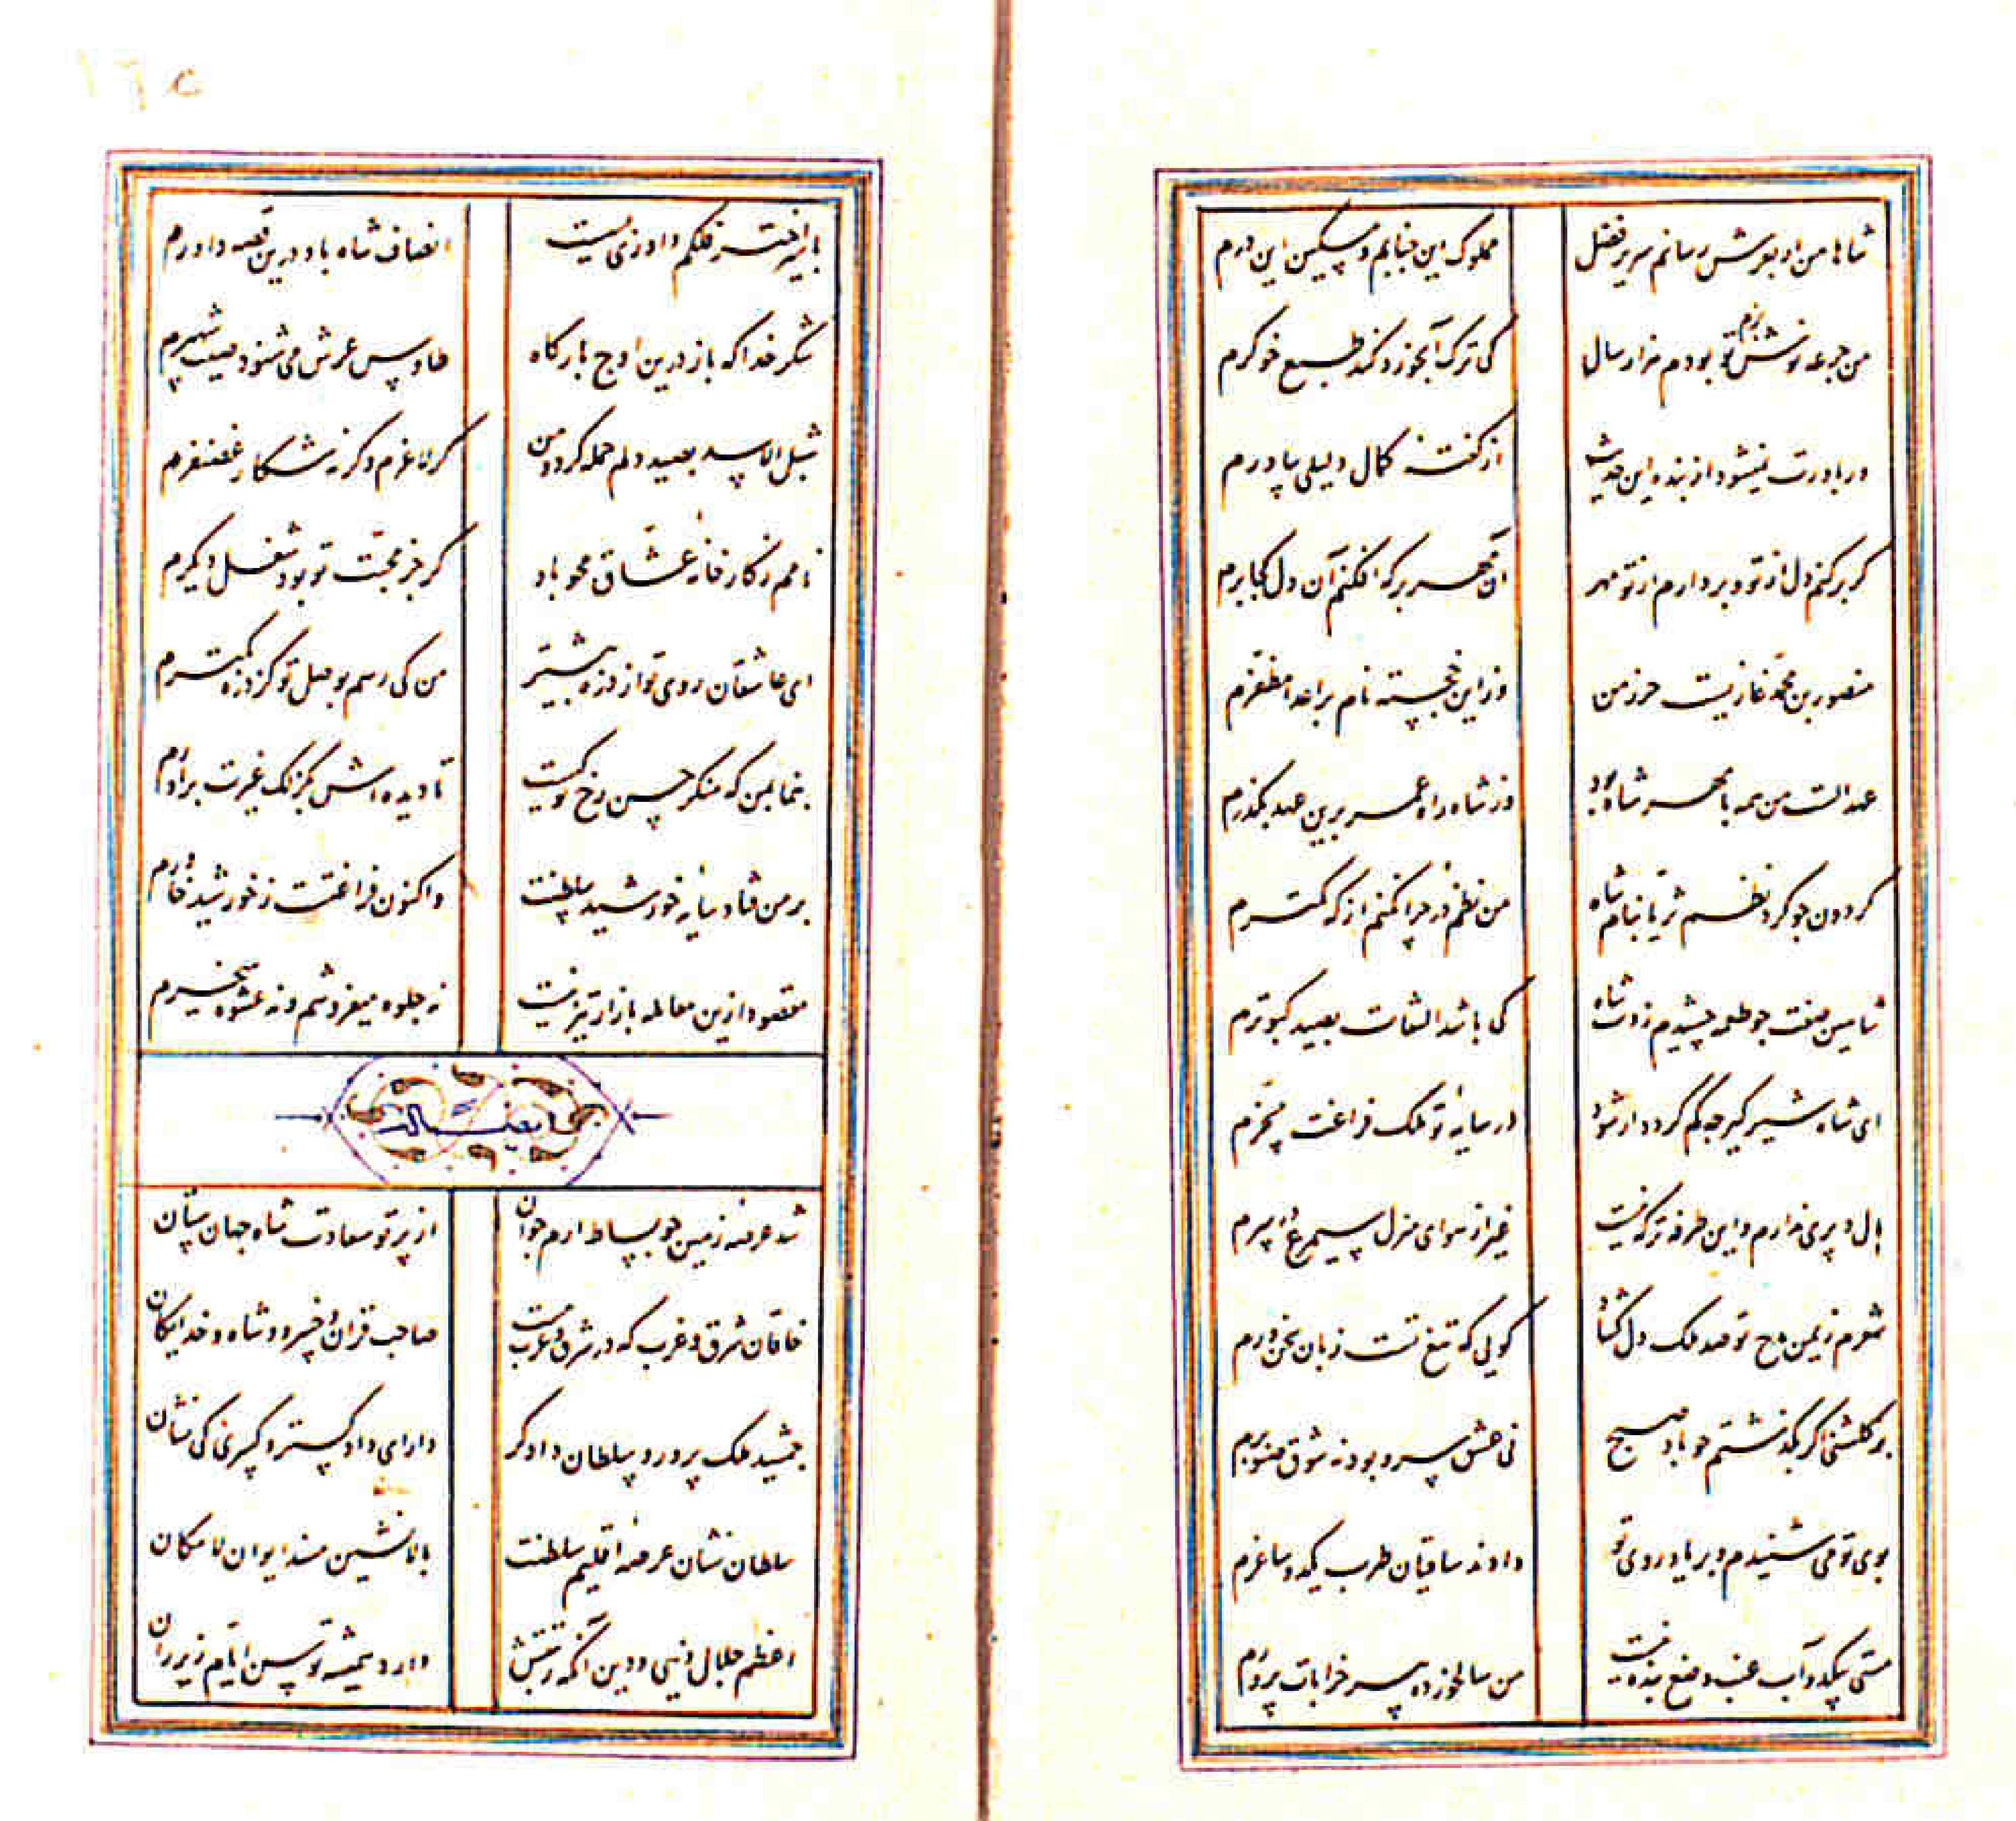 شاها من ار بعرش رسانم سریر فضل
مملوک این جنابم و مسکین این درم
من جرعه نوش بزم تو بودم هزار سال
کی ترک آبخورد کند طبع خوکرم
ور باورت نمیشود از بنده این حدیث
از کفته کمال دلیلی بیاورم
کر برکنم دل از تو و بردارم از تو مهر
آن مهر بر که افکنم آن دل کجا برم
منصور بن محمد غازیست حرز من
وز این خجسته نام بر اعدا مظفرم
عهد الست من همه با مهر شاه بود
وز شاه راه عمر برین عهد بکذرم
کردون چو کرد نظم ثریا بنام شاه
من نظم در چرا نکنم از که کمترم
شاهین صفت چو طعمه چشیدم ز دست شاه
کی باشد التفات بصید کبوترم
ای شاه شیر کیر چه کم کردد ار شود
در سایه تو ملک فراغت میسرم
بال و پری ندارم و این طرفه تر که نیست
غیر از هوای منزل سیمرغ در سرم
شعرم ز یمن مدح تو صد ملک دل کشاد
کویی که تیغ تست زبان سخن ورم
بر کلشنی اکر بکذشتم چو باد صبح
نی عشق سرو بود نه شوق صنوبرم
بوی تو می شنیدم و بر یاد روی تو
دادند ساقیان طرب یکدو ساغرم
مستی بیکدو آب عنب وضع بنده نیست
من سالخورده پیر خرابات پرورم
با سیر اختر فلکم داوری بسیست
انصاف شاه باد درین قصه داورم
شکر خدا که باز درین اوج بارکاه
طاوس عرش می شنود صیت شهپرم
شبل الاسد بصید دلم حمله کرد و من
کر لاغرم و کرنه شکار غضنفرم
نامم ز کارخانه عشاق محو باد
کر جز محبت تو بود شغل دیکرم
ای عاشقان روی تو از ذره بیشتر
من کی رسم بوصل تو کز ذره کمترم
بنما بمن که منکر حسن رخ تو کیست
تا دیده اش بکزلک غیرت برآورم
بر من فتاد سایه خورشید سلطنت
واکنون فراغتست ز خورشید خاورم
مقصود ازین معامله بازار تیزیست
نه جلوه میفروشم و نه عشوه میخرم
شد عرصه زمین چو بساط ارم جوان
از پرتو سعادت شاه جهان ستان
خاقان شرق و غرب که در شرق و غرب اوست
صاحب قران و خسرو و شاه و خدایکان
جمشید ملک پرور و سلطان دادکر
دارای دادکستر و کسری کی نشان
سلطان نشان عرصه اقلیم سلطنت
بالانشین مسند ایوان لامکان
اعظم جلال دنیی و دین آنکه رفعتش
دارد همیشه توسن ایام زیر ران